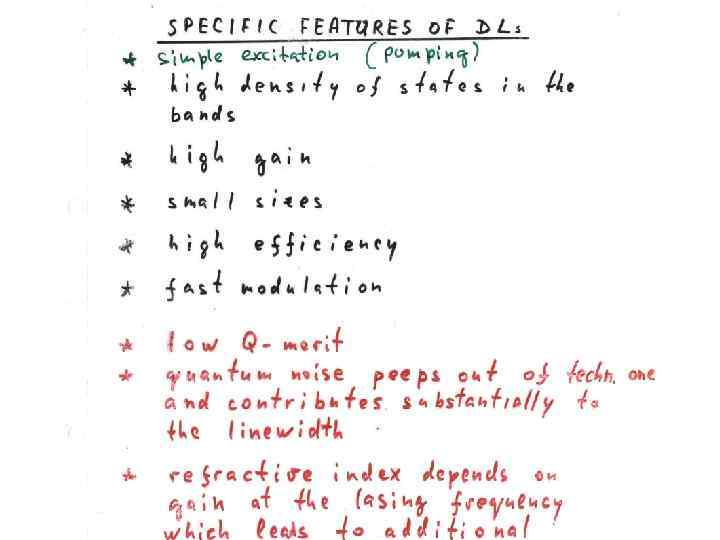 SPECIFIC FEATURES OF DLs
* simple excitation (pumping)
* high density of states in the
bands
* high gain
* small sizes
* high efficiency
* fast modulation
* low Q-merit
* quantum noise peeps out of techn. one
and contributes substantially to
the linewidth
* refractive index depends on
gain at the lasing frequency
which leads to additional